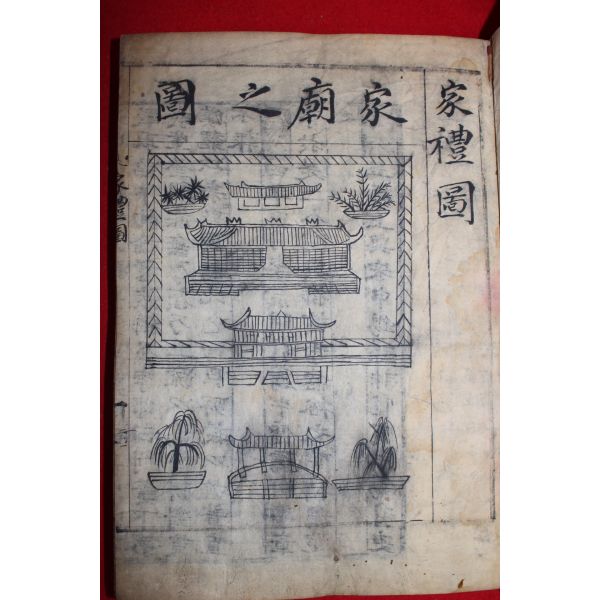 家禮圖
家廟之圖
家禮圖